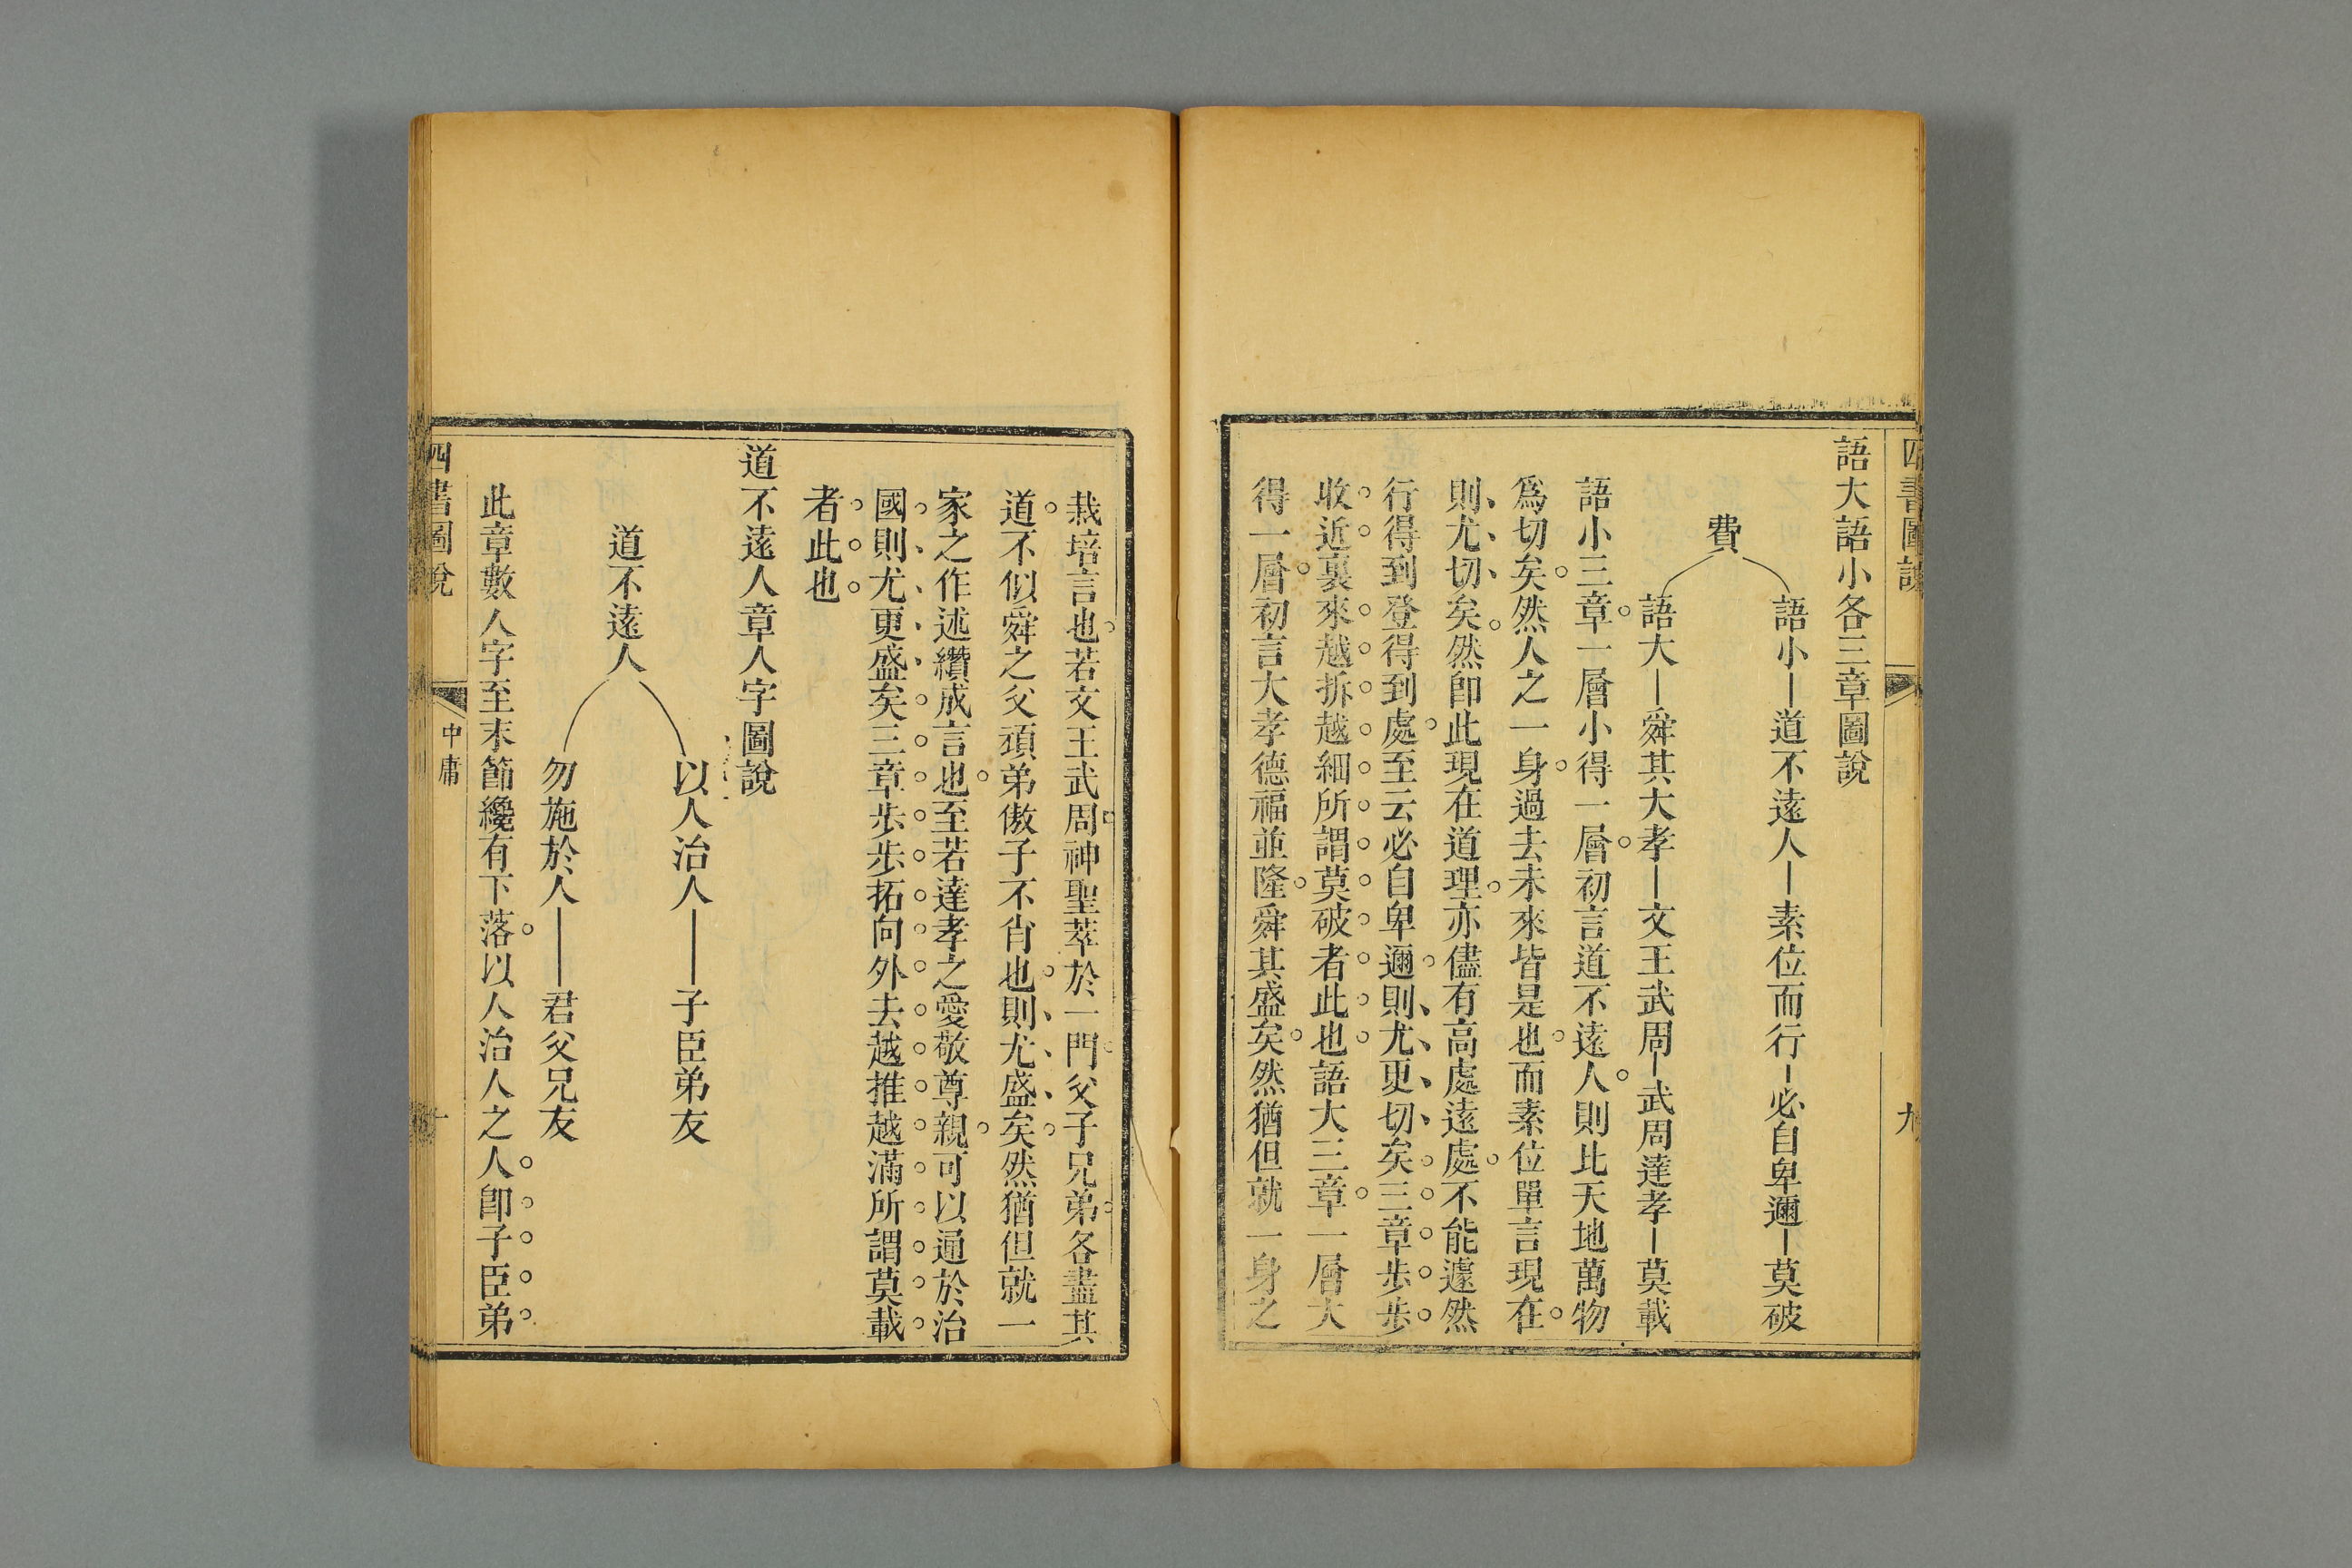 四書圖說
九
語大語小各三章圖說
語小—道不遠人—素位而行—必自卑邇—莫破
費
語大—舜其大孝—文王武周—武周達孝—莫載
語小三章一層小得一層初言道不遠人則比天地萬物
爲切矣然人之一身過去未來皆是也而素位單言現在
則尤切矣然卽此現在道理亦儘有高處遠處不能遽然
行得到登得到處至云必自卑邇則尤更切矣三章步步
收近裏來越拆越細所謂莫破者此也語大三章一層大
得一層初言大孝德福並隆舜其盛矣然猶但就一身之
栽培言也若文王武周神聖萃於一門父子兄弟各盡其
道不似舜之父頑弟傲子不肖也則尤盛矣然猶但就一
家之作述纘成言也至若達孝之愛敬尊親可以通於治
國則尤更盛矣三章步步拓向外去越推越滿所謂莫載
者此也
道不遠人章人字圖說
以人治人—子臣弟友
道不遠人
勿施於人—君父兄友
此章數人字至末節纔有下落以人治人之人卽子臣弟
四書圖說
中庸
十